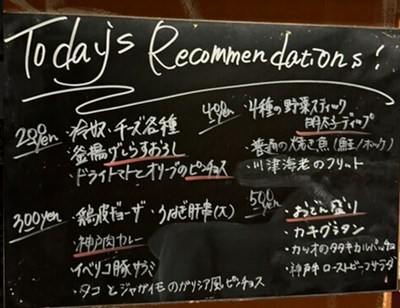 Today's Recommendations!
200yen
・冷奴・チーズ各種
・釜揚げしらすおろし
・ドライトマトとオリーブのピンチョス
300yen
・鶏皮ギョーザ・うなぎ肝串(大)
・神戸肉カレー
・イベリコ豚サラミ
・タコとジャガイモのガリシア風ピンチョス
400yen
・4種の野菜スティック
明太子ディップ
の焼き魚(鮭/ホッケ)
・川津海老のフリット
500yen
・おでん盛り
・カキグラタン
・カツオのタタキカルパッチョ
・神戸牛ローストビーフサラダ